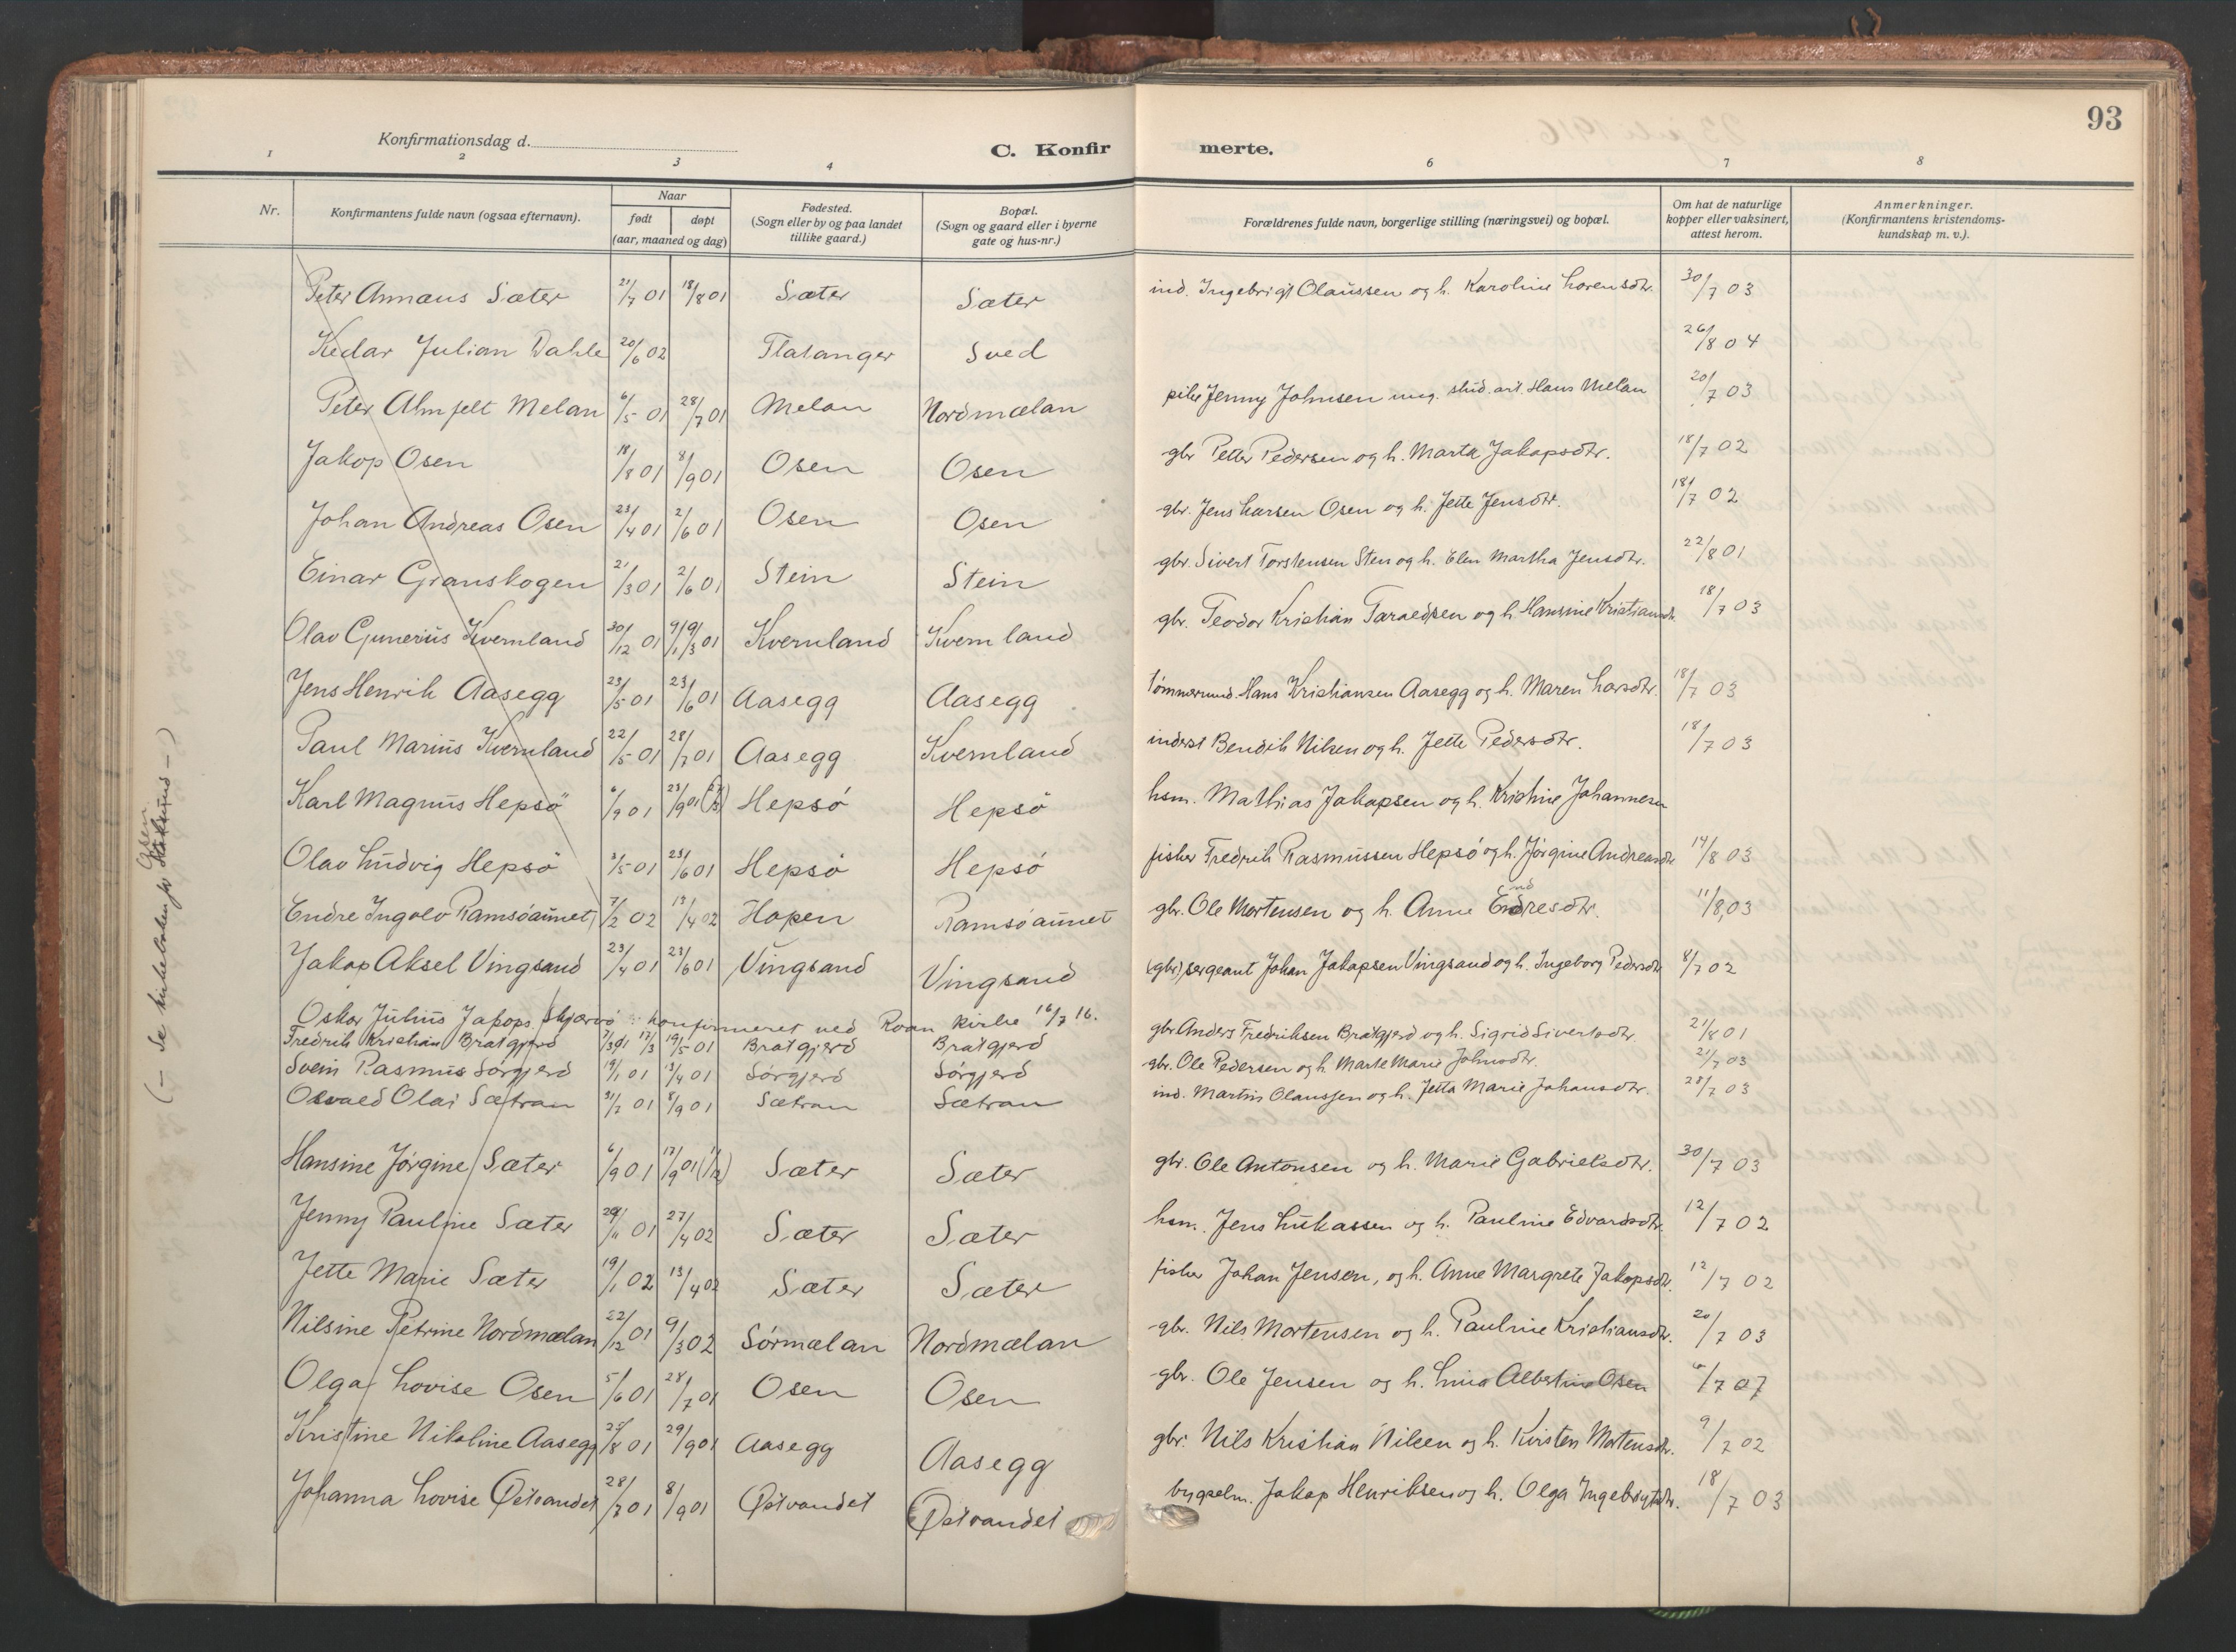 93
Konfirmationsdag d.
C. Konfir
merte.
1 2 3 4 6 7 8
Nr.
Konfirmantens fulde navn (ogsaa efternavn).
Naar
født døpt
(aar, maaned og dag)
Fødested.
(Sogn eller by og paa landet
tillike gaard.)
Bopæl.
(Sogn og gaard eller i byerne
gate og hus-nr.)
Forældrenes fulde navn, borgerlige stilling (næringsvei) og bopæl.
Om hat de naturlige
kopper eller vaksinert,
attest herom.
Anmerkninger.
(Konfirmantens kristendoms-
kundskap m. v.).
Peter Annæus Sæter 21/7 01 18/8 01 Sæter Sæter ind. Ingebrigt Olaussen og h. Karoline Lorensdtr. 30/7 03
Kedar Julian Dahle 20/6 02 Flatanger Sved 26/8 04
Peter Almfelt Melan 6/5 01 28/7 01 Melan Nordmælan pike Jenny Johnsen ung. stud. art. Hans Melan 20/7 03
Jakop Osen 18/8 01 8/9 01 Osen Osen gbr Petter Pedersen og h. Marta Jakopsdtr. 18/7 02
Johan Andreas Osen 23/4 01 2/6 01 Osen Osen gbr. Jens Larsen Osen og h. Jette Jensdtr. 18/7 02
Einar Granskogen 21/3 01 2/6 01 Stein Stein gbr. Sivert Torstensen Sten og h. Elen Martha Jensdtr. 22/8 01
Olav Gunerius Kvernland 30/12 01 9/3 01 Kvernland Kvernland gbr. Teodor Kristian Taraldsen og h. Hansine Kristiansdtr. 18/7 03
Jens Henrik Aasegg 23/5 01 23/6 01 Aasegg Aasegg tømmermd. Hans Kristiansen Aasegg og h. Maren Larsdtr. 18/7 03
Paul Marius Kvernland 22/5 01 28/7 01 Aasegg Kvernland inderst Bendik Nilsen og h. Jette Pedersdtr. 18/7 03
Karl Magnus Hepsö 6/9 01 23/9 01 Hepsö Hepsö hsm. Mathias Jakopsen og h. Kristine Johannesen
Olav Ludvig Hepsö 3/5 01 23/6 01 Hepsö Hepsö fisker Fredrik Rasmussen Hepsö og h. Jörgine Andreasdtr 14/8 03
Endre Ingolv Ramsöaunet 7/2 02 13/4 02 Hopen Ramsöaunet gbr. Ole Mortensen og h. Anne Endresdtr. 11/8, 03
Jakop Aksel Vingsand 23/4 01 23/6 01 Vingsand Vingsand (gbr.) sergeant Johan Jakopsen Vingsand og h. Ingeborg Pedersdtr 8/7 02
Oskar Julius Jakops. Skjærvö : konfirmeret ved Roan kirke 16/7 16.
Fredrik Kristian Bratgjerd 19/5 01 Bratgjerd Bratgjerd gbr. Anders Fredriksen Bratgjerd og h. Sigrid Sivertsdtr. 21/8 01
Svein Rasmus Sörgjerd 19/1 01 13/4 01 Sörgjerd Sörgjerd gbr. Ole Pedersen og h. Marte Marie Johnsdtr. 21/7 03
Osvald Olai Sætran 31/7 01 8/9 01 Sætran Sætran ind. Martin Olaussen og h. Jetta Marie Johansdtr. 28/7 03
Hansine Jörgine Sæter 6/9 01 17/9 01 Sæter Sæter gbr. Ole Antonsen og h. Marie Gabrielsdtr. 30/7 03
Jenny Pauline Sæter 29/11 01 27/4 02 Sæter Sæter hsm. Jens Lukassen og h. Pauline Edvardsdtr. 12/7 02
Jette Marie Sæter 19/1 02 13/4 02 Sæter Sæter fisker Johan Jensen, og h. Anne Margrete Jakopsdtr. 12/7 02
Nilsine Petrine Nordmælan 22/12 01 9/3 02 Sörmælan Nordmælan gbr. Nils Mortensen og h. Pauline Kristiansdtr. 20/7 03
Olga Lovise Osen 5/6 01 28/7 01 Osen Osen gbr. Ole Jensen og h. Lina Albertine Osen 6/7 07
Kristine Nikoline Aasegg 25/8 01 29/9 01 Aasegg Aasegg gbr. Nils Kristian Nilsen og h. Kirsten Mortensdtr. 9/7 02
Johanna Lovise Østvandet 28/7 01 8/9 01 Østvandet Østvandet bygselm. Jakop Henriksen og h. Olga Ingebrigtsdtr. 18/7 03
(- Se kirkeboken for Osen -)